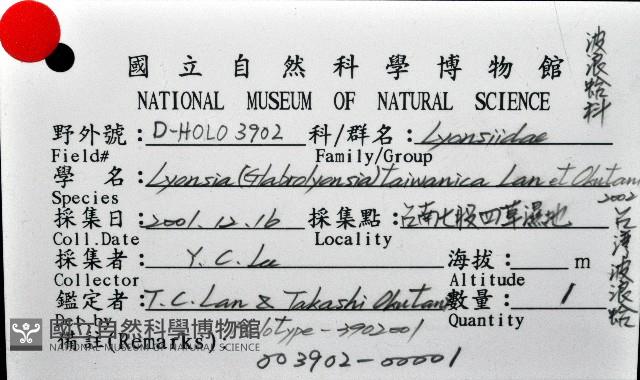 國立自然科學博物館
NATIONAL MUSEUM OF NATURAL SCIENCE
波浪蛤科
野外號: D-HOLO 3902 科/群名: Lyonsiidae
Field# Family/Group
學 名: Lyonsia (Glabrolyonsia) taiwanica Lan et Okutani
2002
Species
台灣波浪蛤
採集日: 2001.12.16 採集點: 台南七股四草濕地
Coll.Date Locality
採集者: Y. C. Lee 海拔: m
Collector Altitude
鑑定者: T.C. Lan & Takashi Okutani 數量: 1
Det.by Quantity
國立自然科學博物館
NATIONAL MUSEUM OF NATURAL SCIENCE
備註(Remarks): -3902001
003902-00001